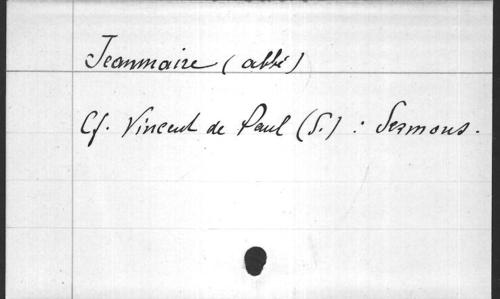 Jeanmaire (abbé)
Cf. Vincent de Paul (S.) : Sermons.